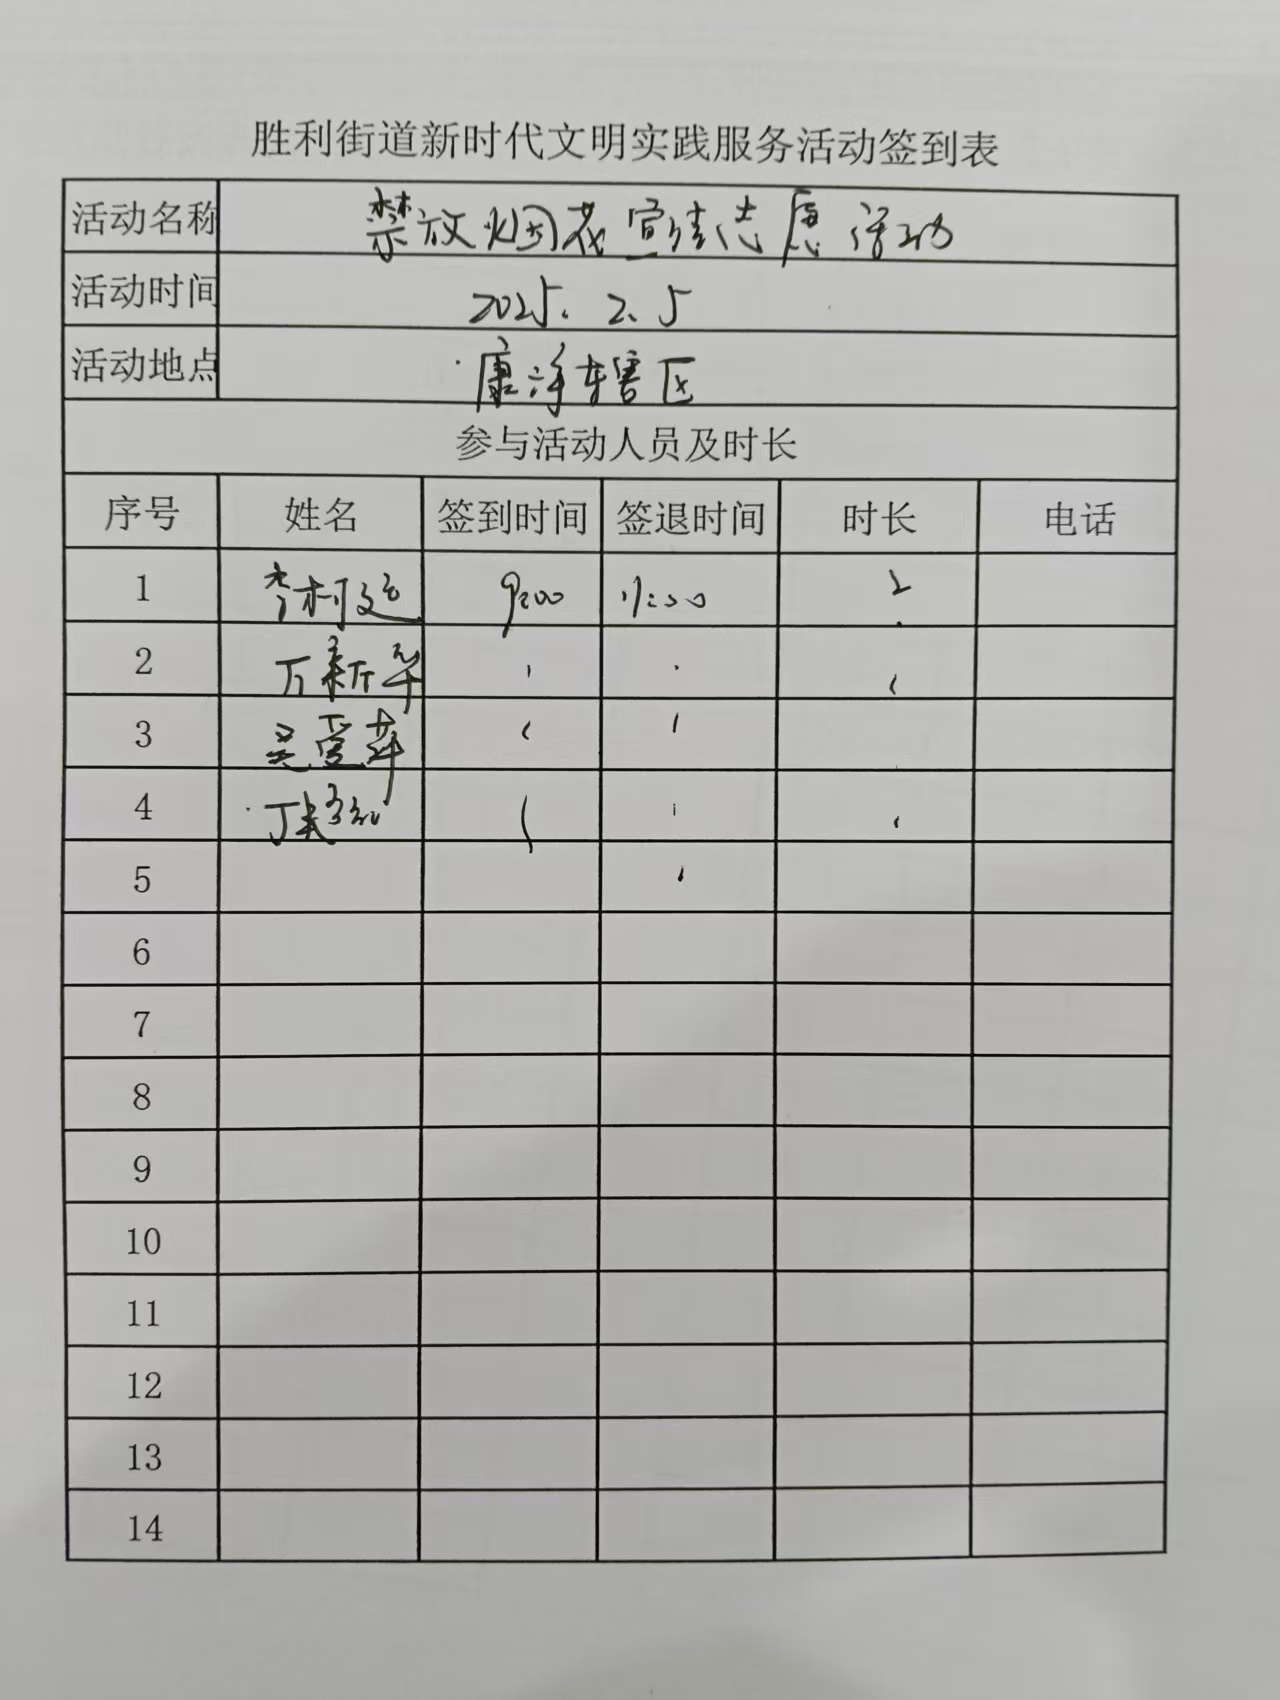 胜利街道新时代文明实践服务活动签到表
活动名称 禁放烟花宣传志愿活动
活动时间 2025.2.5
活动地点 康泽辖区
参与活动人员及时长
序号 姓名 签到时间 签退时间 时长 电话
1 9:00 11:00 2
2 丁新华
3 吴爱萍
4
5
6
7
8
9
10
11
12
13
14